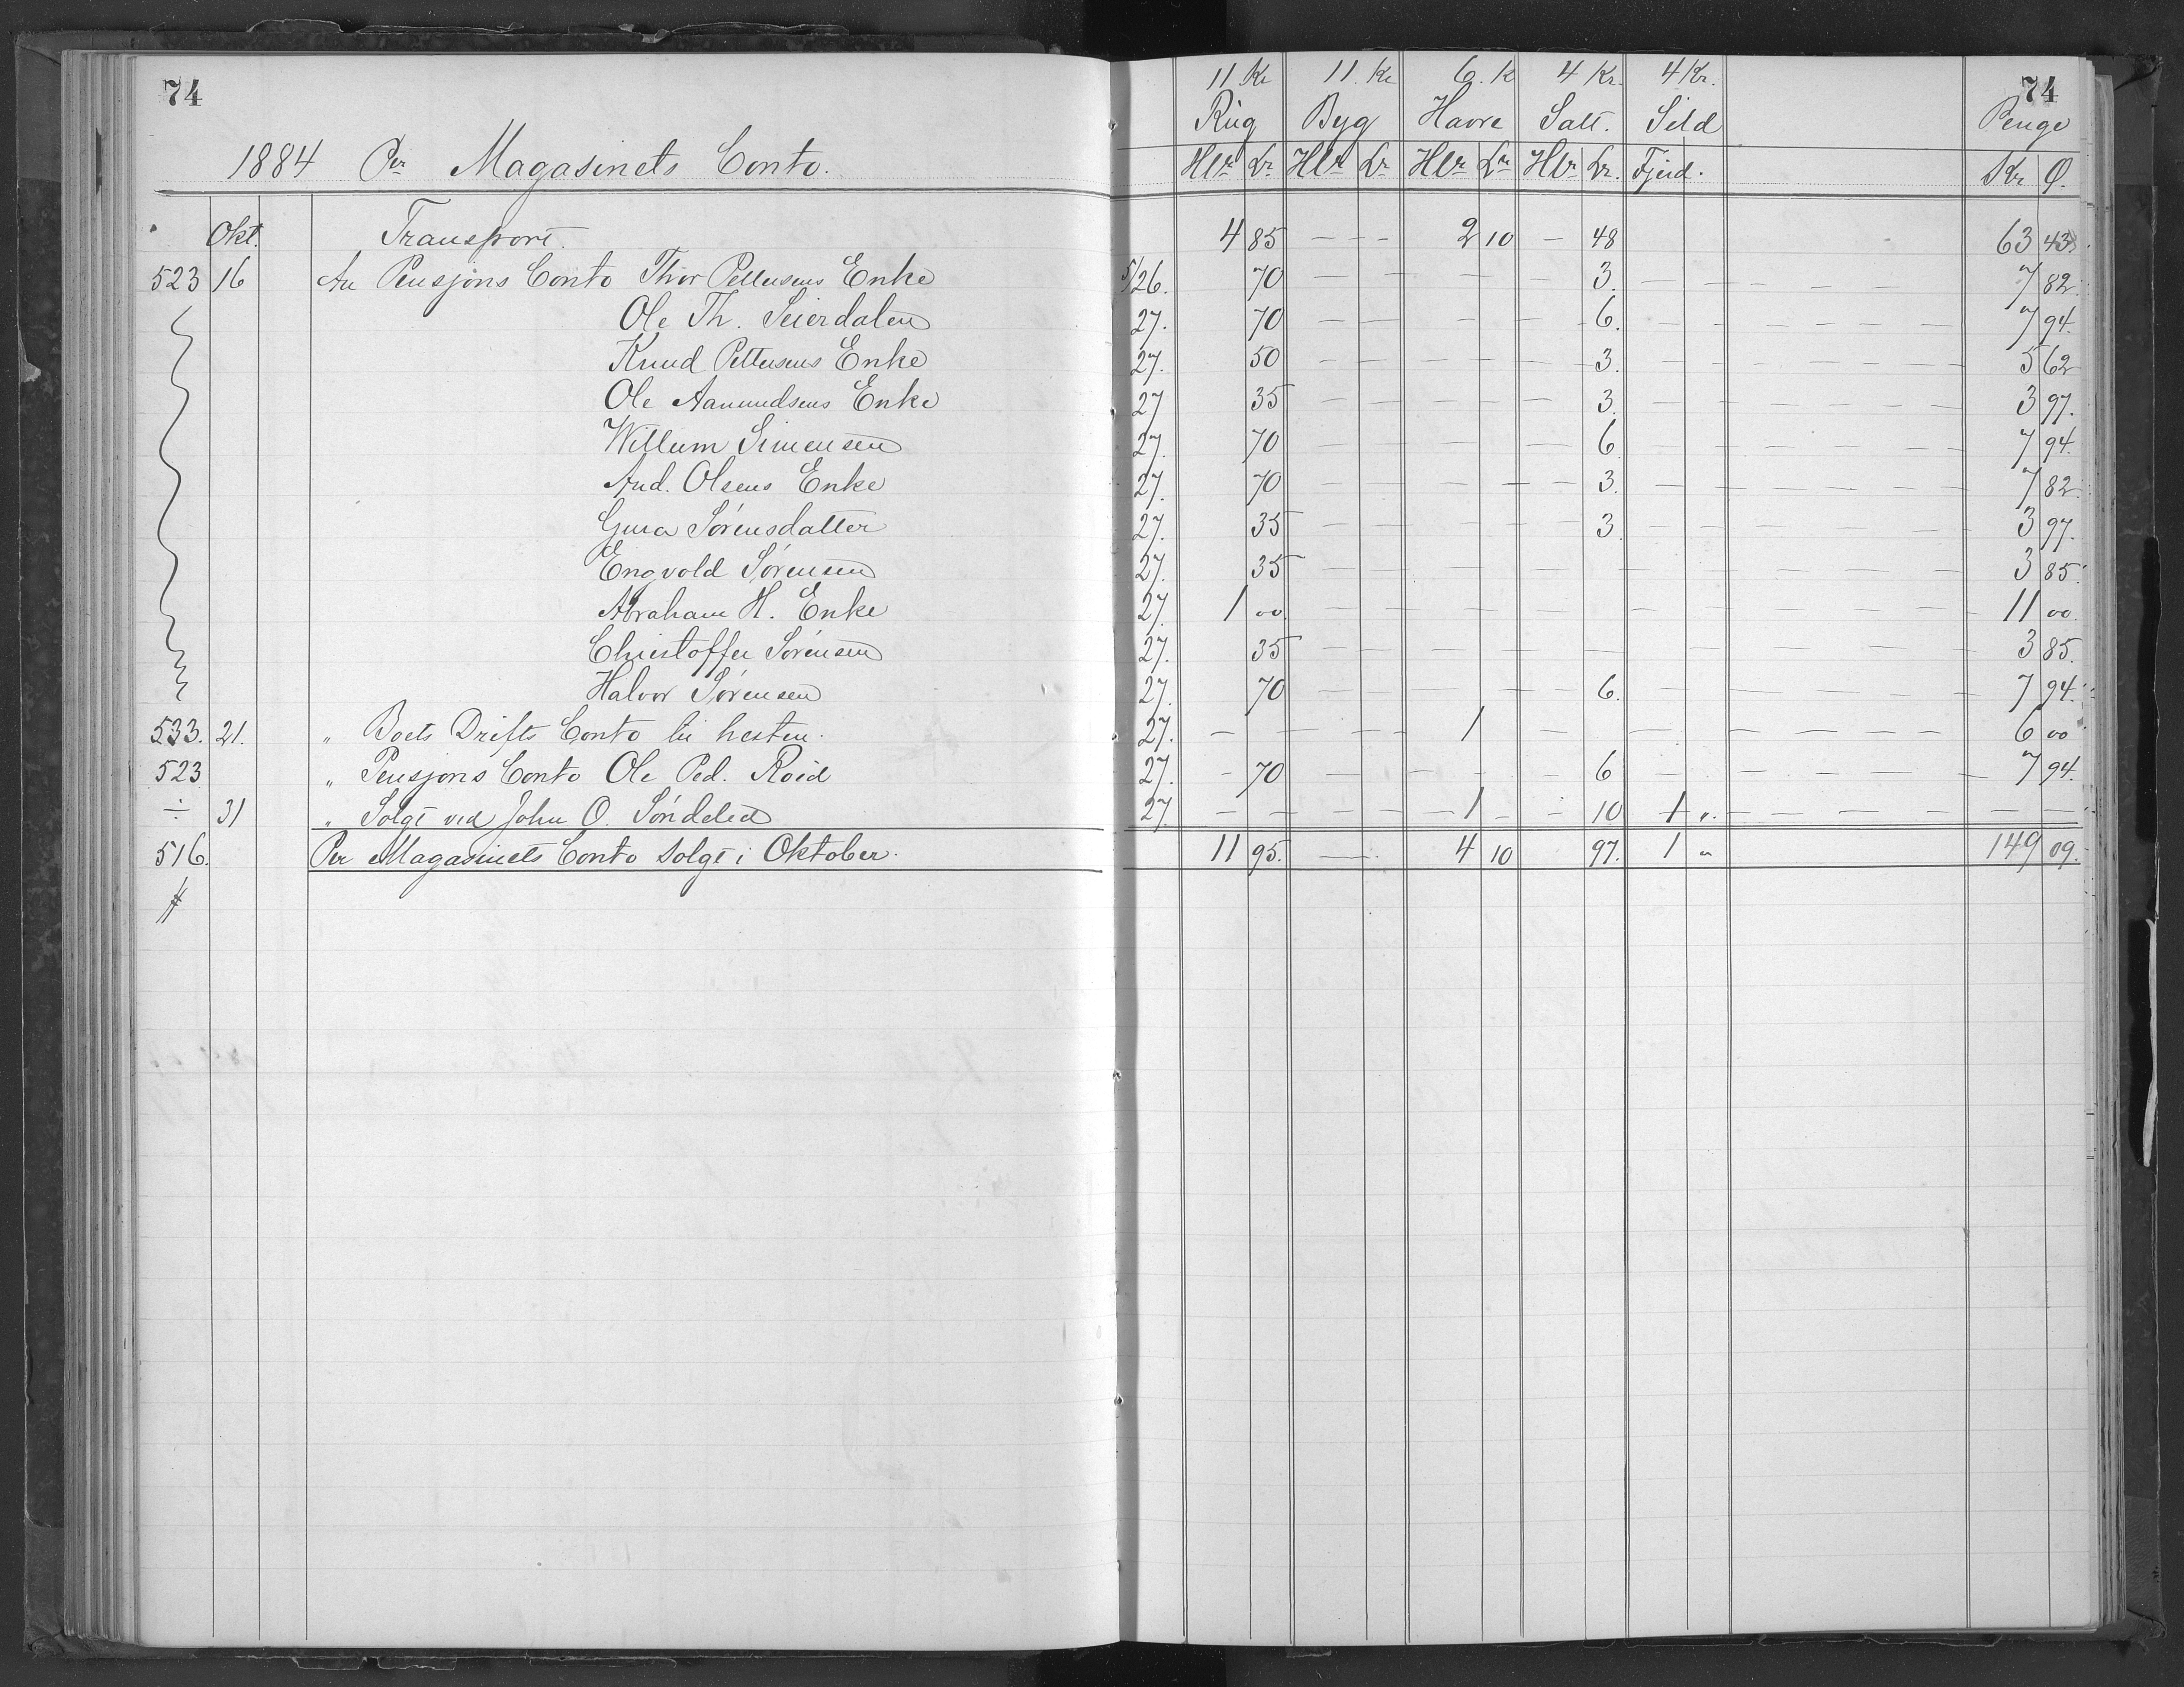 74
1884 Pr Magasinets Conto.
11 Kr 11. Kr 6. K 4 Kr. 4 Kr. 74
Rug Byg Havre Salt. Sild Penge
Hlr Lr Hlr Lr Hlr Lr Hlr Lr. Fjerd. Kr Ø.
Okt. Transport. 4 85 — - - 2 10 — 48 63 43
523 16 An Pensjons Conto Thor Pettersens Enke 5/26. 70 — — — — — 3. — — — — — — 7 82.
Ole Th. Seierdalen 27. 70 — — — — 6. — — — — — — 7 94.
Knud Pettersens Enke 27. 50 — — — — — 3. — — — — — — 5 62
Ole Aanundsens Enke 27 35 — — — — — 3. — — — — — — 3 97.
Willum Simensen 27. 70 — — — — — 6 — — — — — — 7 94.
And. Olsens Enke 27. 70 — — — — — 3. — — — — — — 7 82.
Gura Sørensdatter 27. 35 — — — — — 3. — — — — — — 3 97.
Engvold Sørensen 27. 35 — — — — — — — — — — — 3 85.
Abraham H. Enke 27. 1 00. — — — — — — — — — — — 11 00.
Christoffer Sørensen 27. 35 — — — — — — — — — — — 3 85.
Halvor Sørensen 27. 70 — — — — — 6. — — — — — 7 94.
533. 21. " Boets Drifts Conto til hesten. 27. — — — — 1 — — — — — — — 6 00
523 " Pensjons Conto Ole Ped. Roid 27. - 70 — — — — — 6 — — — — — — 7 94.
÷ 31 " Solgt ved John O. Søndeled 27. — — — — 1 - — 10 1 ". — — — — — —
516. Per Magasinets Conto solgt i Oktober. 11 95. — 4 10 97. 1 " 149 09.